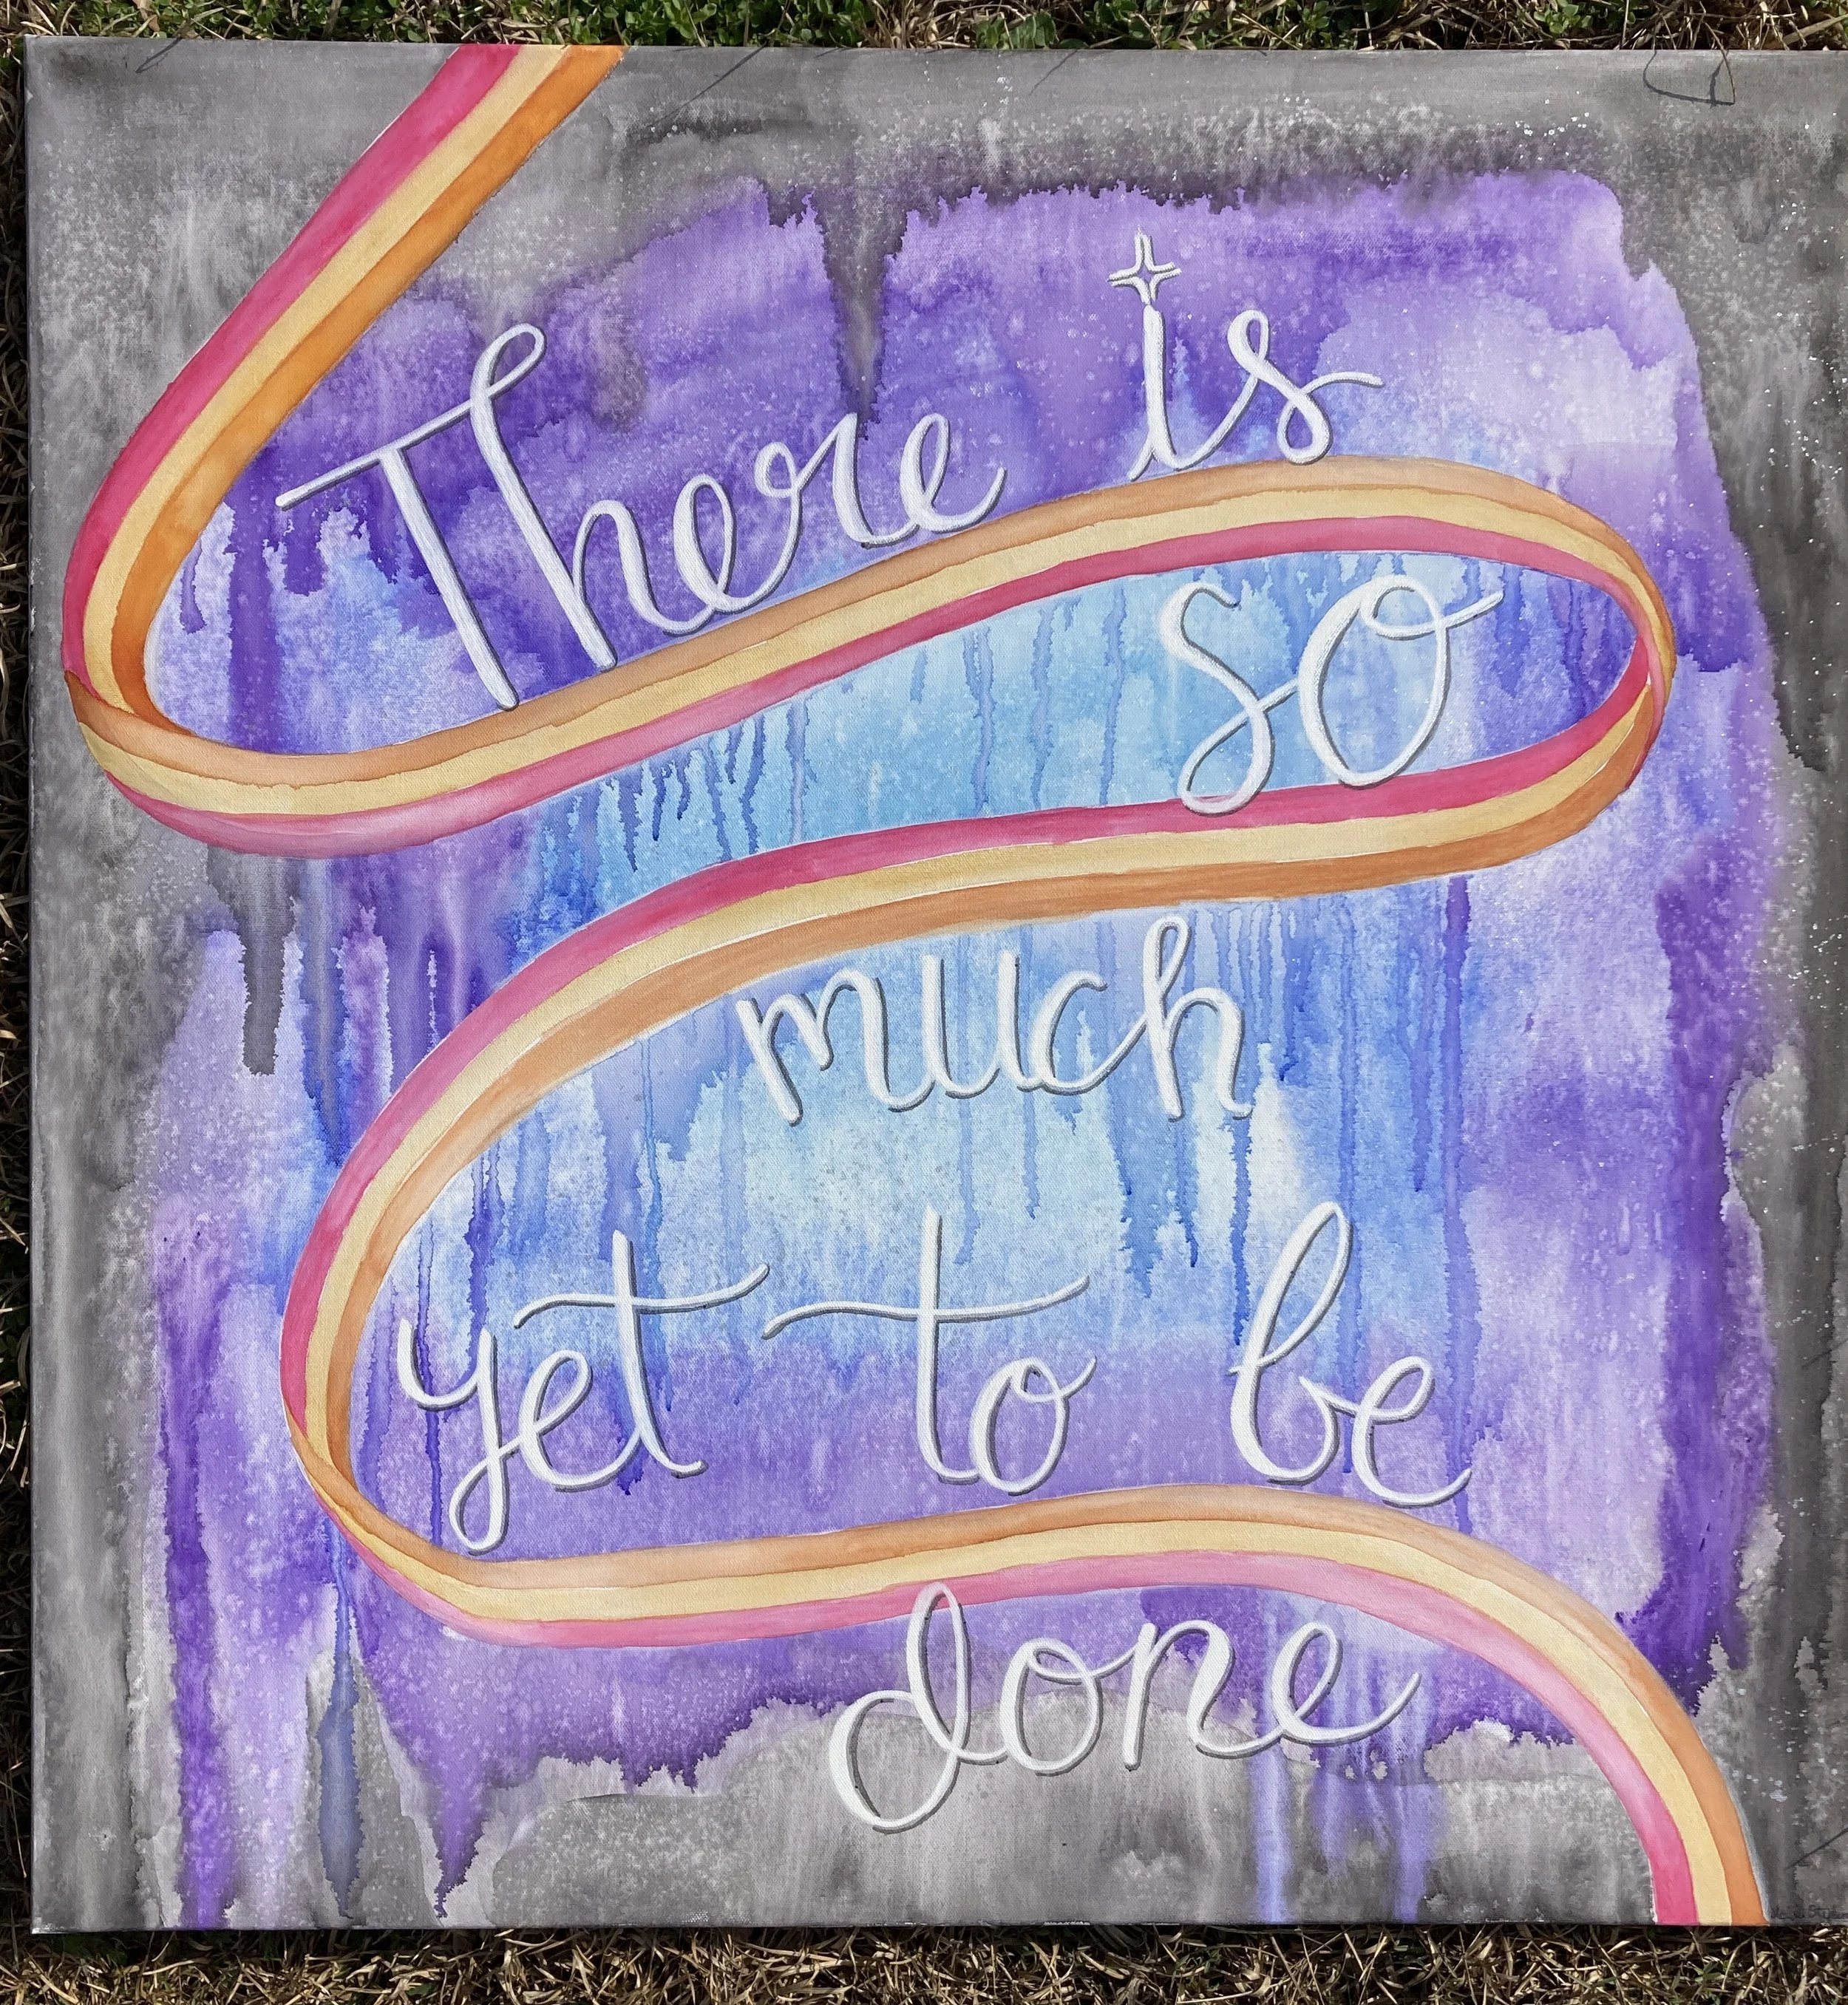 There is
so
much
yet to be
done